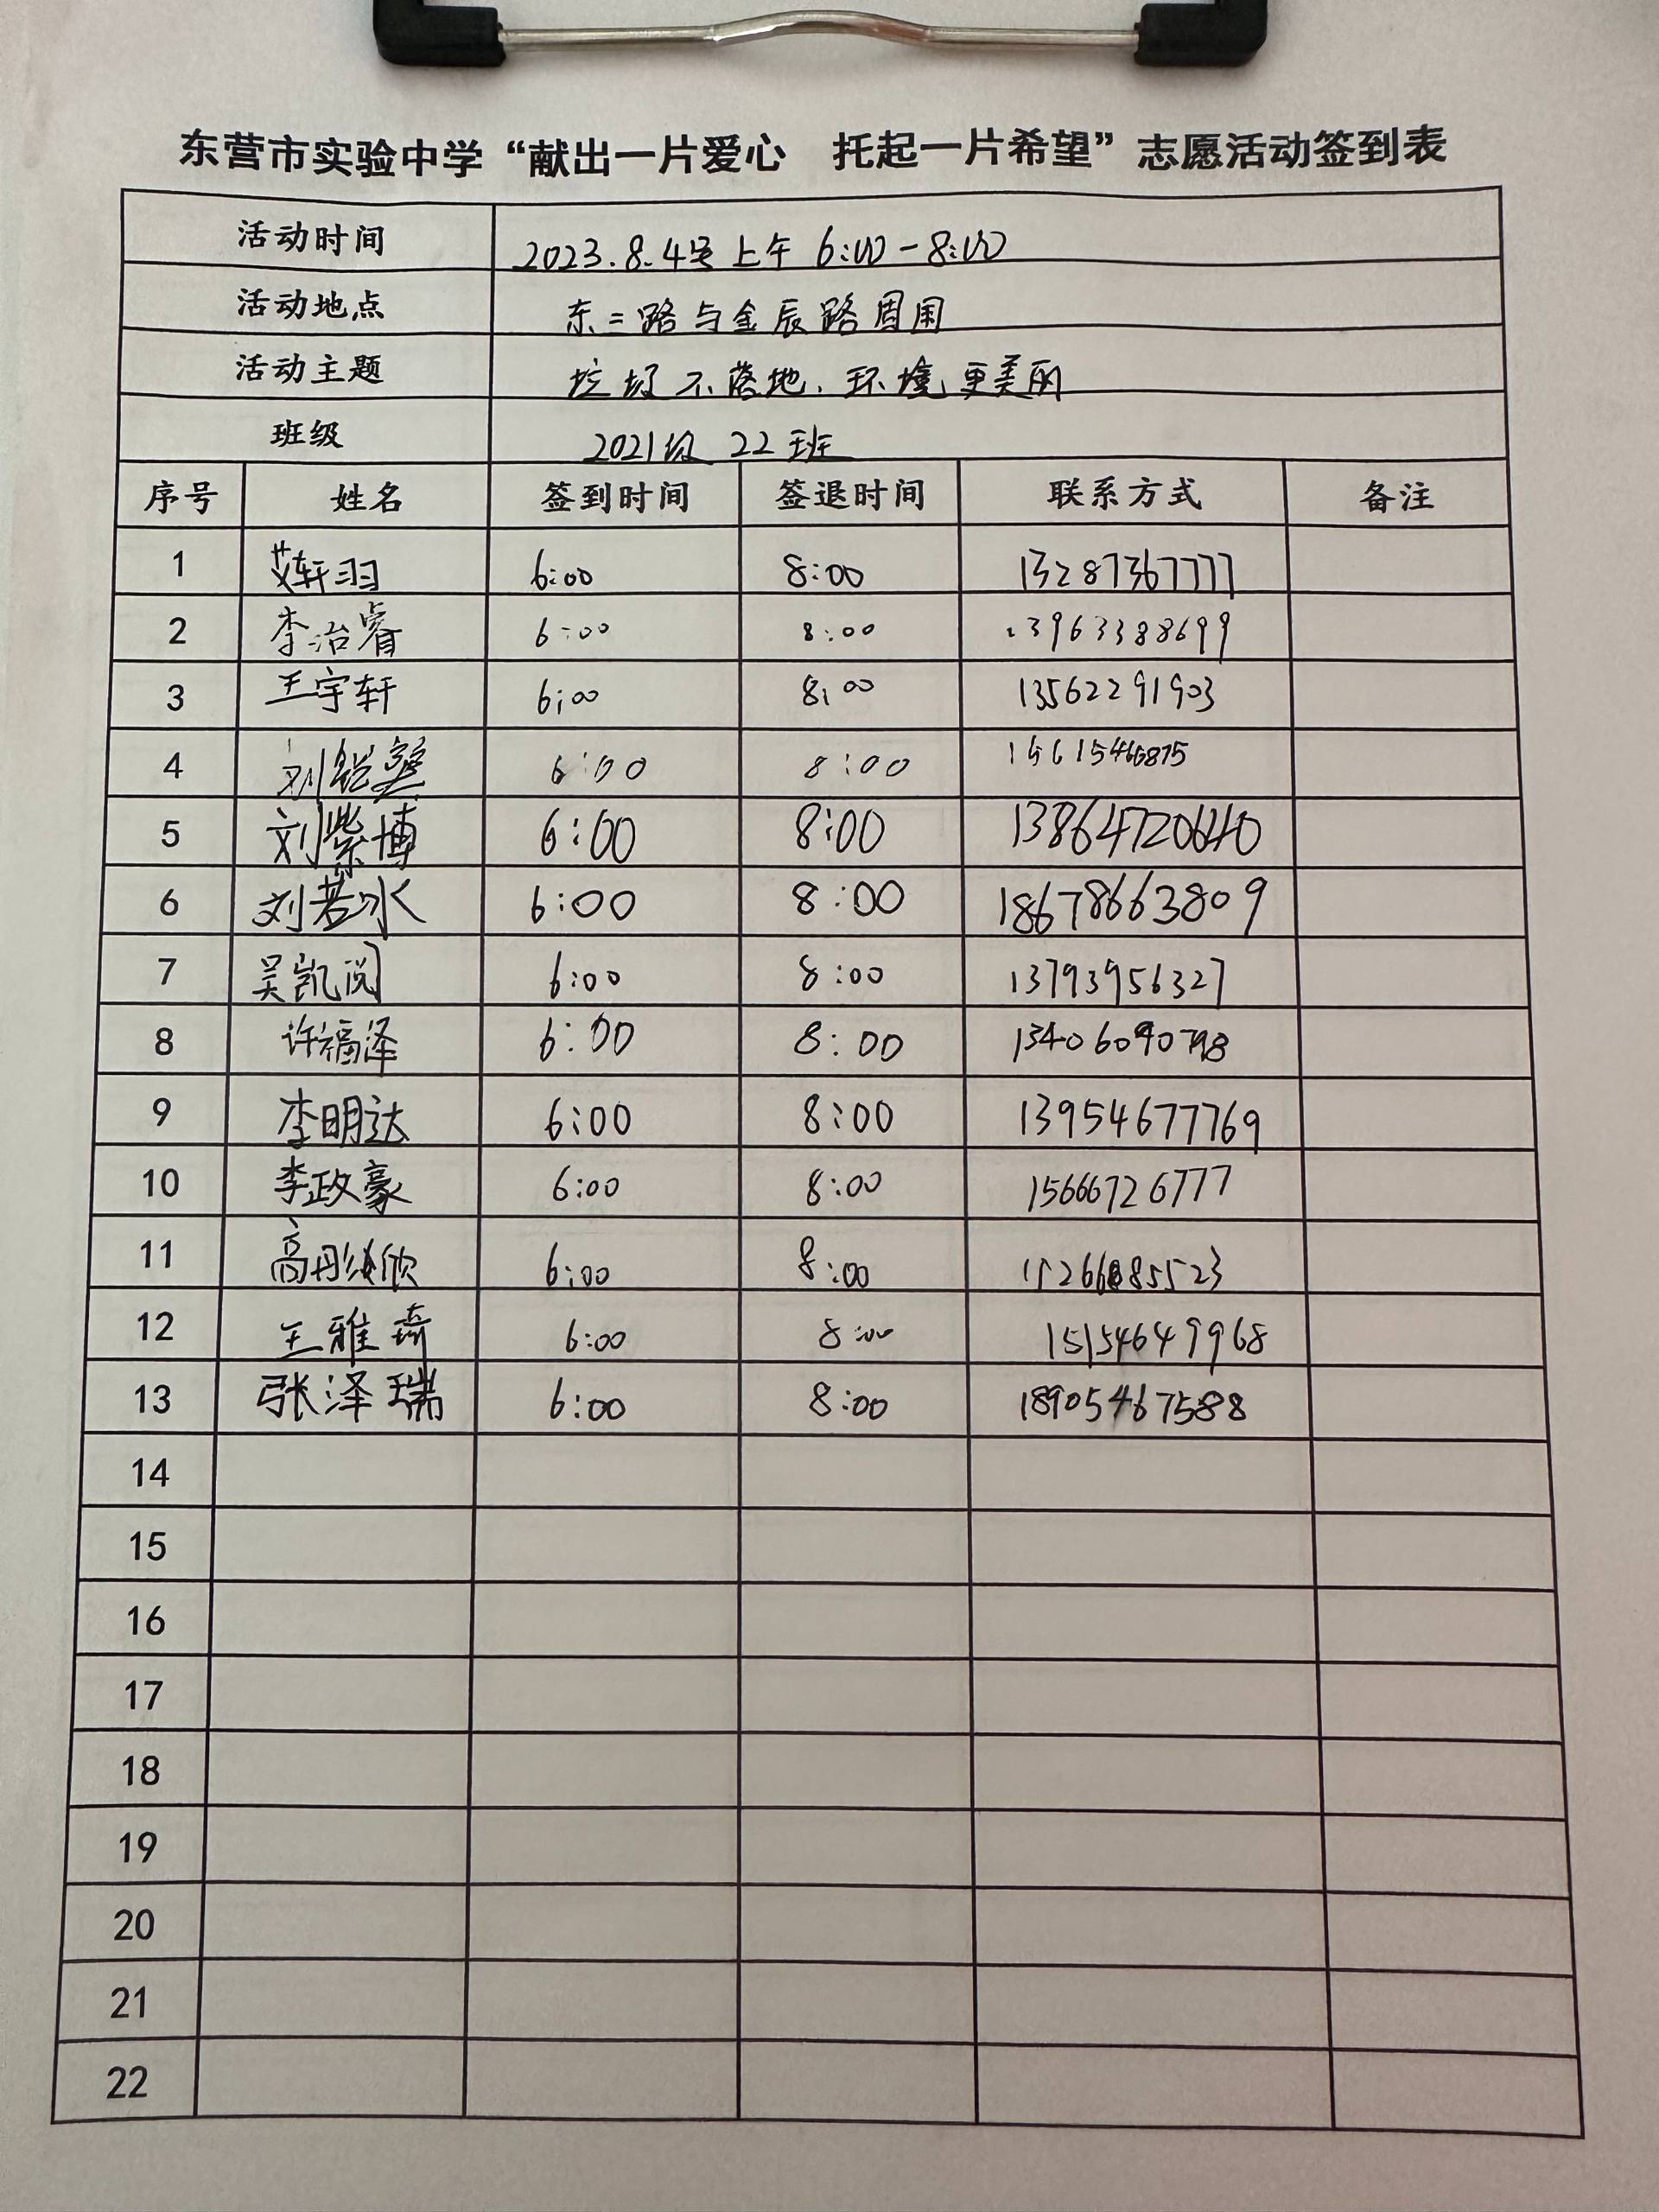 东营市实验中学“献出一片爱心 托起一片希望”志愿活动签到表
活动时间 2023.8.4号上午 6:00-8:00
活动地点 东二路与金辰路周围
活动主题 垃圾不落地、环境更美丽
班级 2021级 22班
序号 姓名 签到时间 签退时间 联系方式 备注
1 艾轩羽 6:00 8:00 13287367777
2 李治睿 6:00 8:00 13963388699
3 王宇轩 6:00 8:00 13562291903
4 刘 6:00 8:00 15615466875
5 刘紫博 6:00 8:00 13864720640
6 刘若水 6:00 8:00 18678663809
7 吴凯悦 6:00 8:00 13793956327
8 许福泽 6:00 8:00 13406090798
9 李明达 6:00 8:00 13954677769
10 李政豪 6:00 8:00 15666726777
11 高彤欣 6:00 8:00 15266885523
12 王雅琦 6:00 8:00 15154649968
13 张泽瑞 6:00 8:00 18905467588
14
15
16
17
18
19
20
21
22